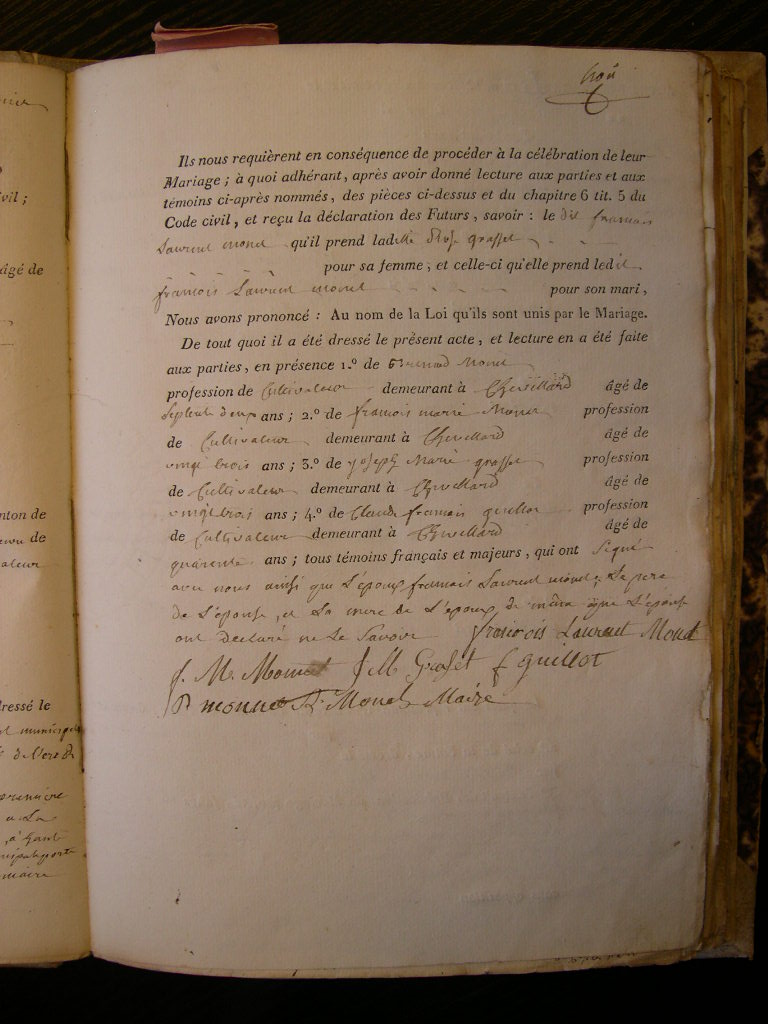 trois
Ils nous requièrent en conséquence de procéder à la célébration de leur
Mariage ; à quoi adhérant, après avoir donné lecture aux parties et aux
témoins ci-après nommés, des pièces ci-dessus et du chapitre 6 tit. 5 du
Code civil, et reçu la déclaration des Futurs, savoir : le dit francois
Laurent monet qu'il prend ladelle grasset
pour sa femme, et celle-ci qu'elle prend ledit
françois Laurent monet pour son mari,
Nous avons prononcé : Au nom de la Loi qu'ils sont unis par le Mariage.
De tout quoi il a été dressé le présent acte, et lecture en a été faite
aux parties, en présence 1.º de Monet
profession de Cultivateur demeurant à Chevillard âgé de
Septente deux ans ; 2.º de francois marie Monet profession
de Cultivateur demeurant à Chevillard âgé de
vingt trois ans ; 3.º de joseph Marie grasset profession
de Cultivateur demeurant à Chevillard âgé de
vingt trois ans ; 4.º de Claude francois guillot profession
de Cultivateur demeurant à Chevillard âgé de
quarente ans ; tous témoins français et majeurs, qui ont signé
avec nous ainsi que L'époux francois Laurent monet ; Le pere
de L'épouse, et La mere de L'époux, de même que L'épouse
ont declaré ne Le Savoir francois Laurent Monet
f. M. Monnet J M Graset f guillot
monnet Monet Maire
vil ;
âgé de
nton de
de
ateur
ressé le
municipal
premiere
a La
maire